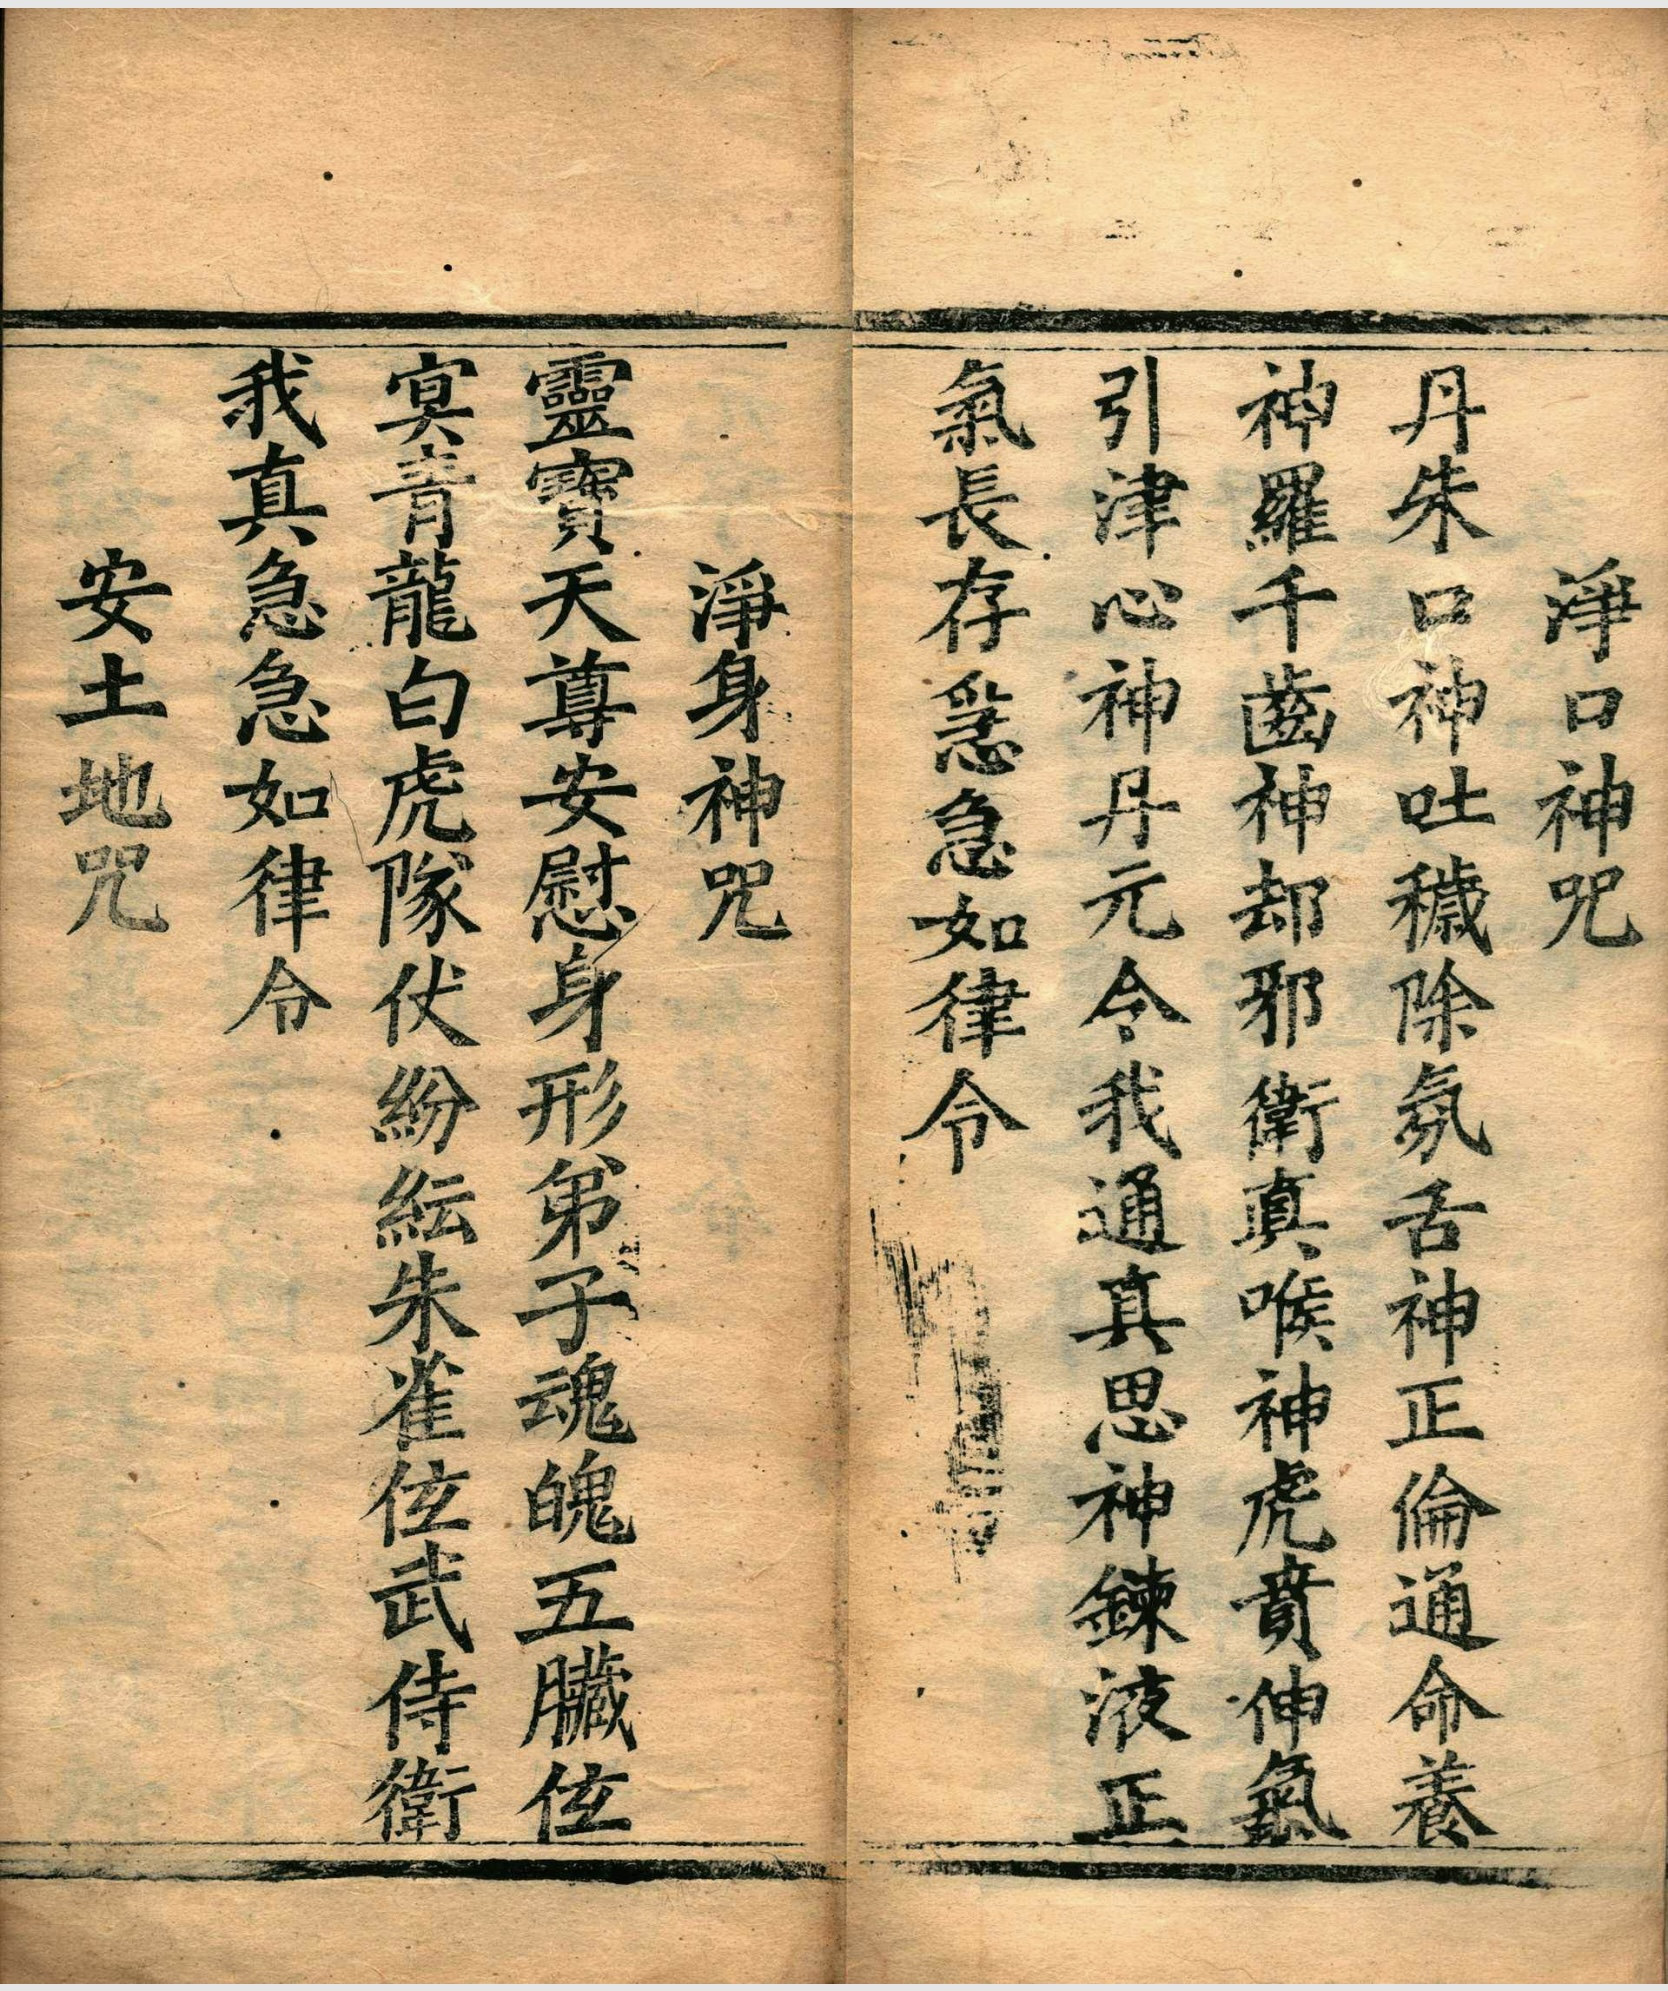 淨口神咒
丹朱口神吐穢除氛舌神正倫通命養
神羅千齒神却邪衛真喉神虎賁伸氣
引津心神丹元令我通真思神鍊液正
氣長存急急如律令
淨身神咒
靈寶天尊安慰身形弟子魂魄五臟伭
冥青龍白虎隊伏紛紜朱雀伭武侍衛
我真急急如律令
安土地咒